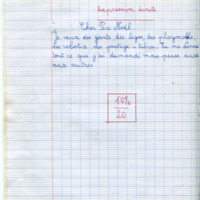 Expression écrite
Cher Père Noël
Je veux des gants, des légos, des playmobils,
des robots, des protège-tibia, tu me donne
tout ce que j'ai demandé mais pense aussi
aux autres
20